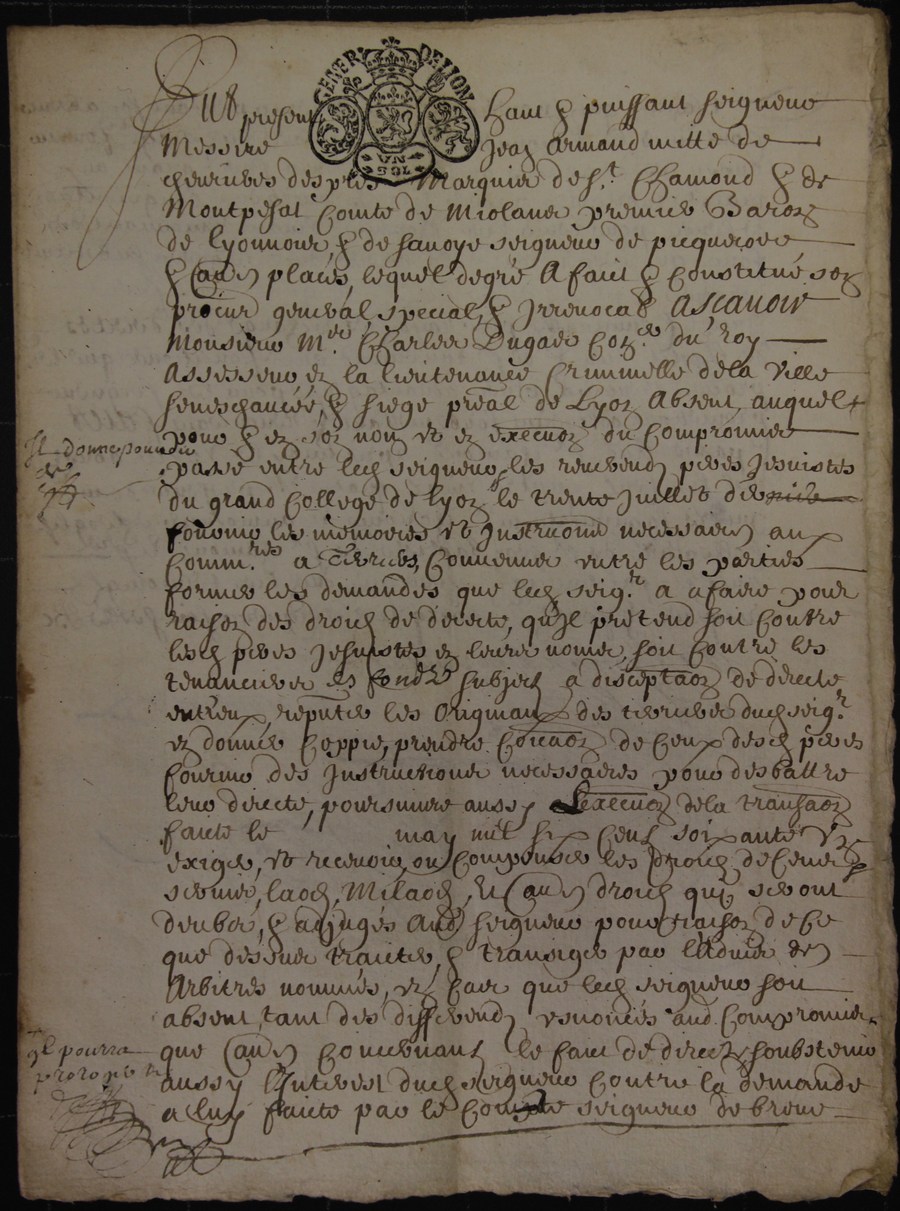 Fut present Haut & puissant seigneur
GENER DE LION
UN SOL
Messire Jean Armand mitte de
chevrieres Marquis de St. Chamond & de
Montpesat Comte de Miolans premier Baron
de Lyonnois & de Savoye seigneur de
& places, lequel de gré A faict & Constitué son
procur general special, & Irrevocab Ascavoir
Monsieur Mre. Charles Dugas Con.er du roy
Assesseur en la lieutenance Criminelle de la Ville
seneschaucée, & siege préal de Lyon Absent, auquel
Il donne pouvoir
pour & en son nom et en execuon du Compromis
passé entre led seigneur, les reverendz peres Jesuistes
du grand College de Lyon le trente Juillet
fournir les mémoires et Instructions necessaires aux
Comm.res a Terriers, Convenus entre les parties
former les demandes que led seig.r a a faire pour
raison des droicts de directe, qu'il prétend soit Contre
lesd peres Jesuistes en leurs noms, soit Contre les
tenanciers es fondz subjects a disceptaon de directe
entreux, les Originaux des terriers dud seig.r
en donner Coppie, prendre de Ceux desd peres
fournir des Instructions necessaires pour desbattre
leur directe, poursuivre aussy Lexecuon de la transaon
faicte le may mil six Cens soixante
exiger, et recevoir, ou Compenser les droicts de Cens
servis, laods, Milaods, Et droicts qui seront
deubs, & adjugés Aud seigneur pour raison de Ce
que dessus traicter, & transiger par l'Advis des
Arbitres nommés, en Cas que led seigneur soit
absent, tant des differendz enoncés aud. Compromis,
Il pourra
que Concernans le faict de directe soubstenir
aussy l'Interest dud seigneur Contre la demande
a luy faicte par le seigneur de